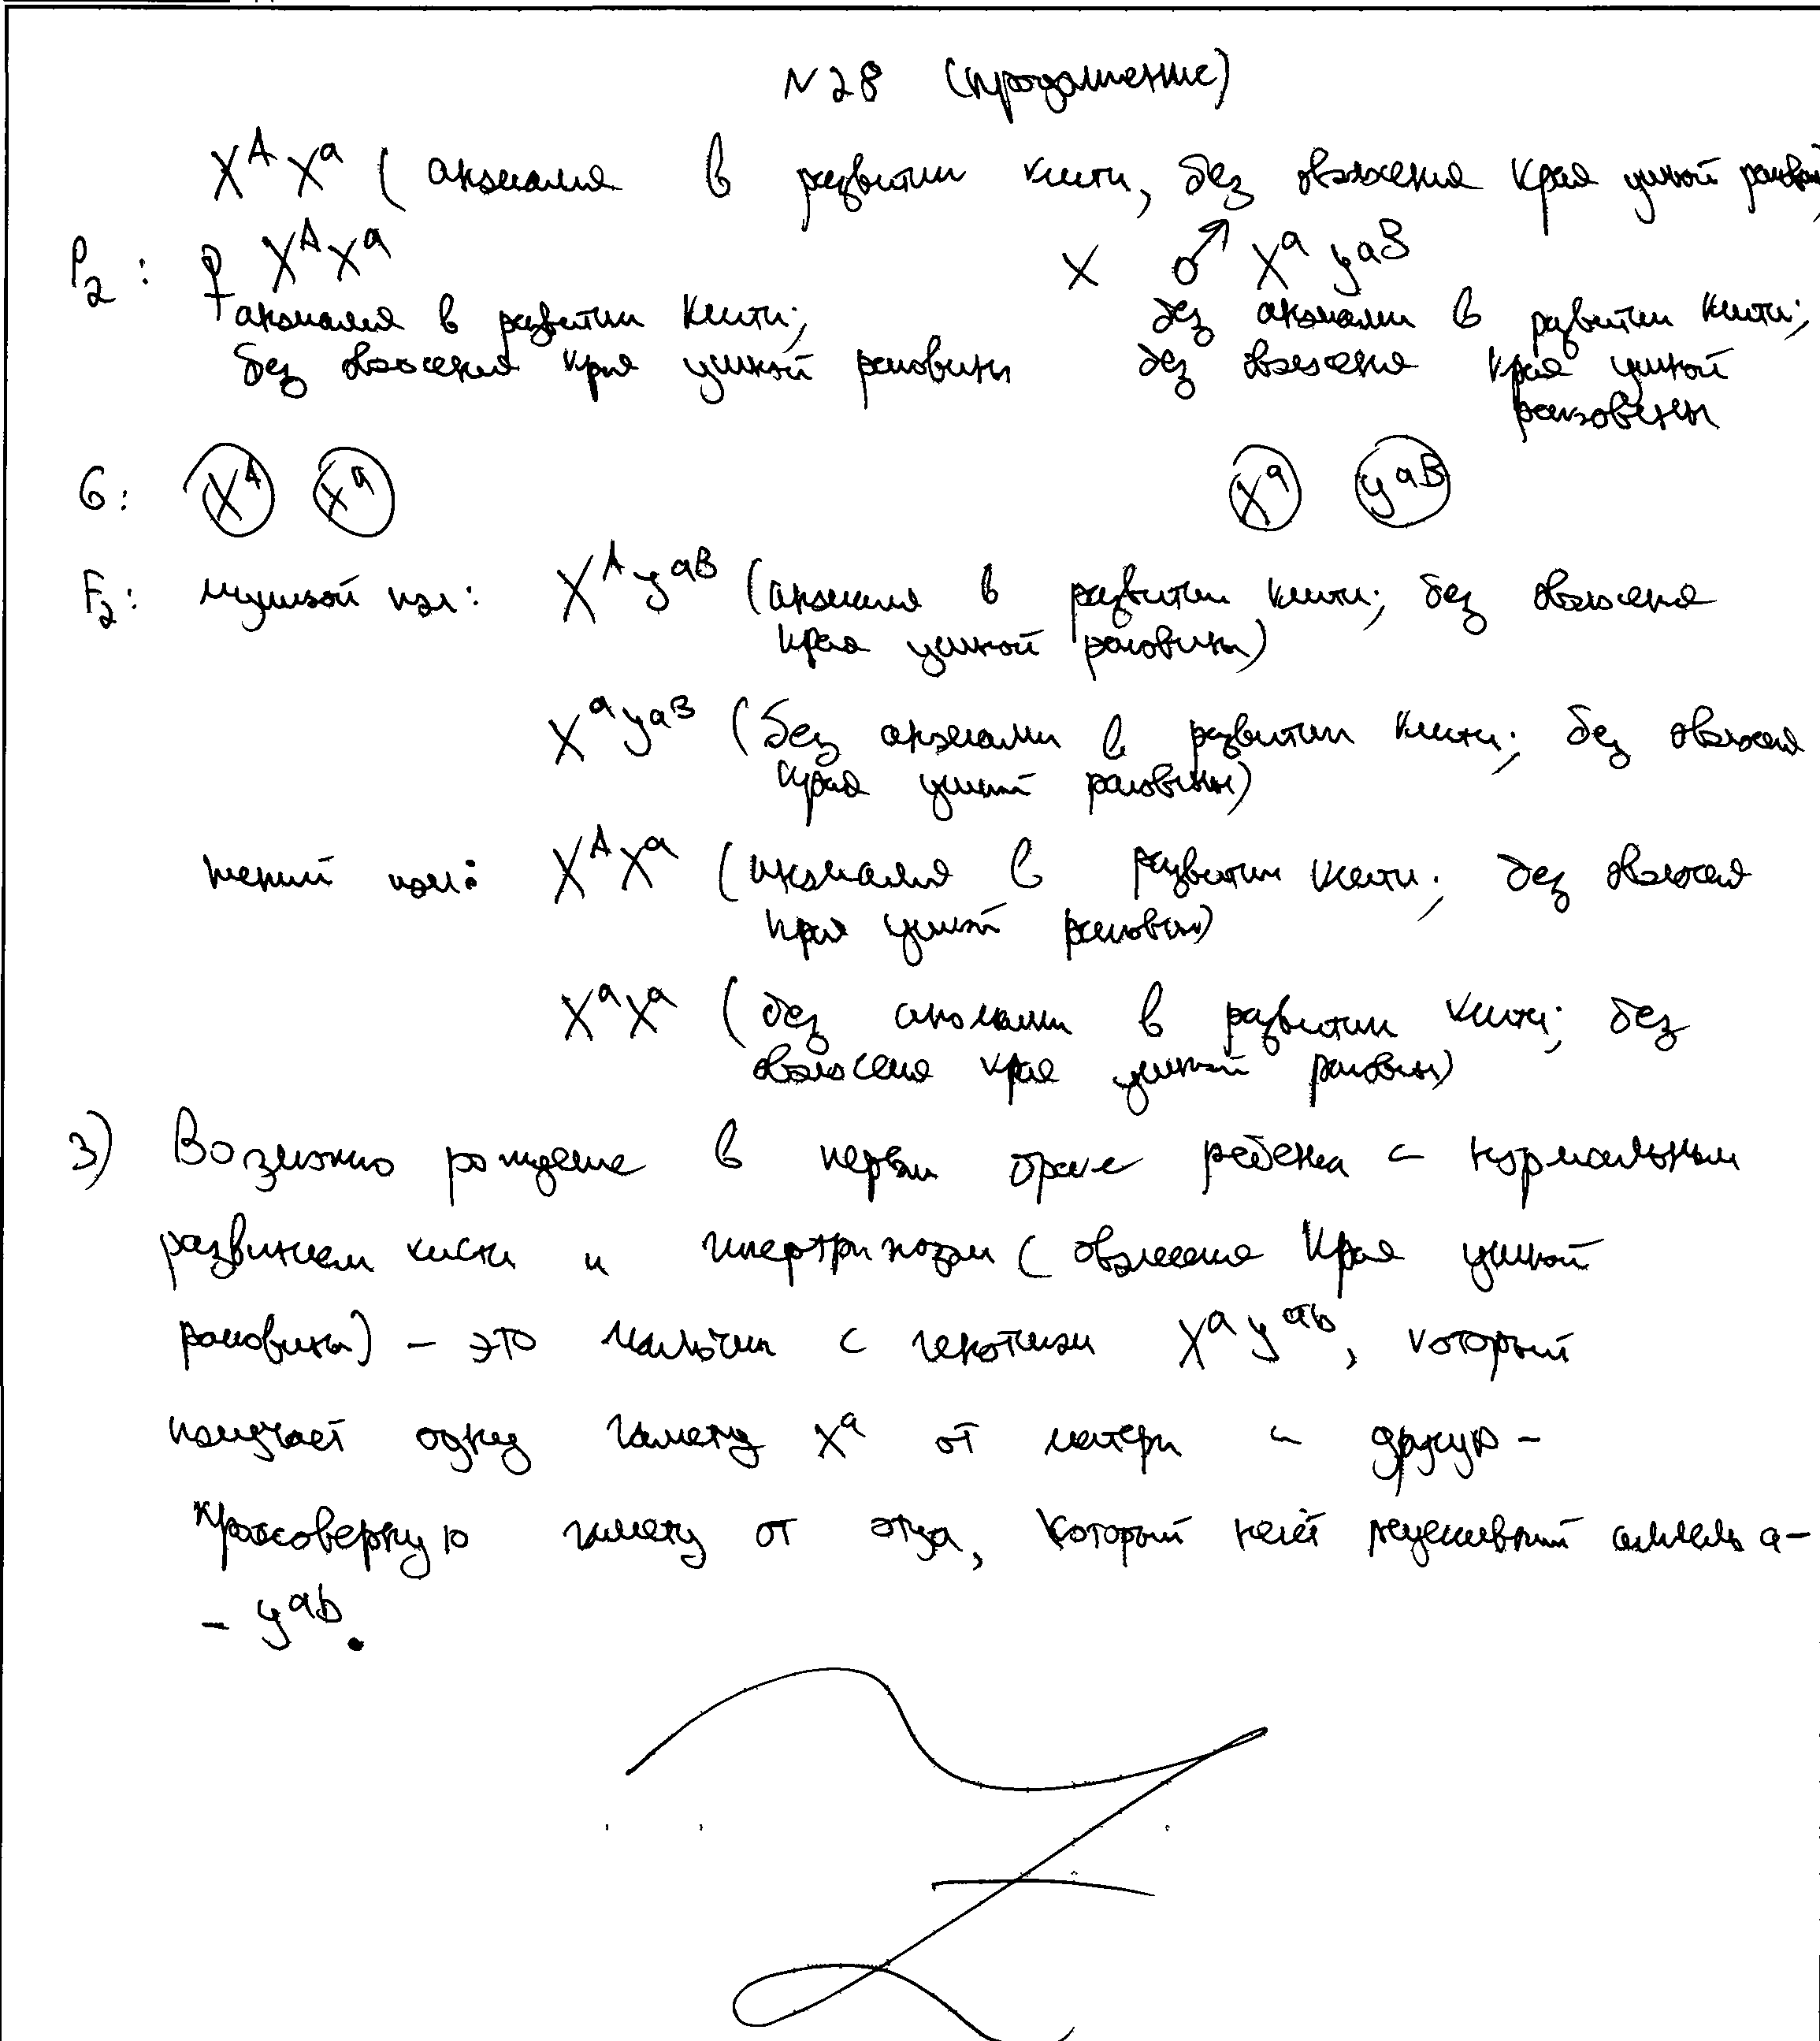 N28 (продолжение)
X^A X^a (аномалия в развитии кисти, без оволосения края ушной раковины)
P₂: ♀ X^A X^a × ♂ X^a y^aB
аномалия в развитии кисти; без аномалии в развитии кисти;
без оволосения края ушной раковины без оволосения края ушной
раковины
G: X^A X^a X^a y^aB
F₂: мужской пол: X^A y^aB (аномалия в развитии кисти; без оволосения
края ушной раковины)
X^a y^aB (без аномалии в развитии кисти; без оволосения
края ушной раковины)
женский пол: X^A X^a (аномалия в развитии кисти; без оволосения
края ушной раковины)
X^a X^a (без аномалии в развитии кисти; без
оволосения края ушной раковины)
3) Возможно рождение в первом браке ребёнка с нормальным
развитием кисти и гипертрихозом (оволосение края ушной
раковины) – это мальчик с генотипом X^a y^ab, который
получает одну гамету X^a от матери и другую –
кроссоверную гамету от отца, который несёт рецессивный аллель a –
– y^ab.